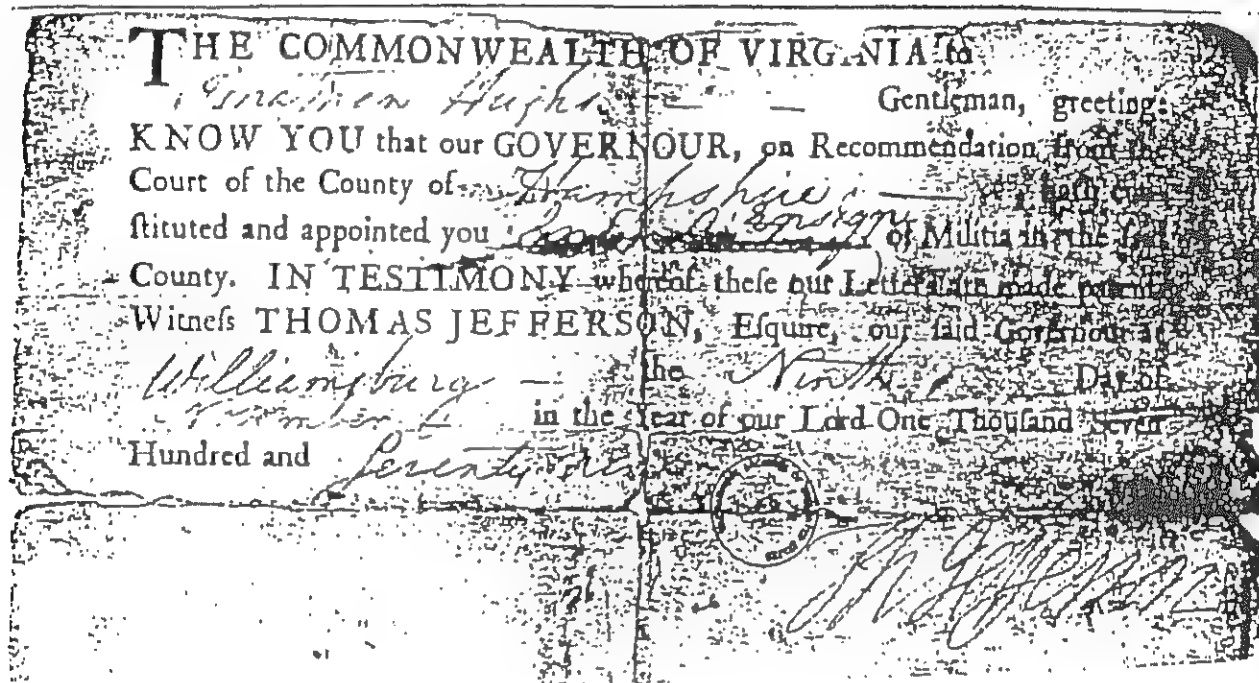 THE COMMONWEALTH OF VIRGINIA to
Hughs Gentleman, greeting:
KNOW YOU that our GOVERNOUR, on Recommendation from the
Court of the County of Hampshire hath con-
ſtituted and appointed you Ensign of Militia in the ſaid
County. IN TESTIMONY whereof theſe our Letters are made patent.
Witneſs THOMAS JEFFERSON, Eſquire, our ſaid Governour at
Williamsburg — the Ninth Day of
November in the Year of our Lord One Thouſand Seven
Hundred and Seventy nine
Th Jefferson